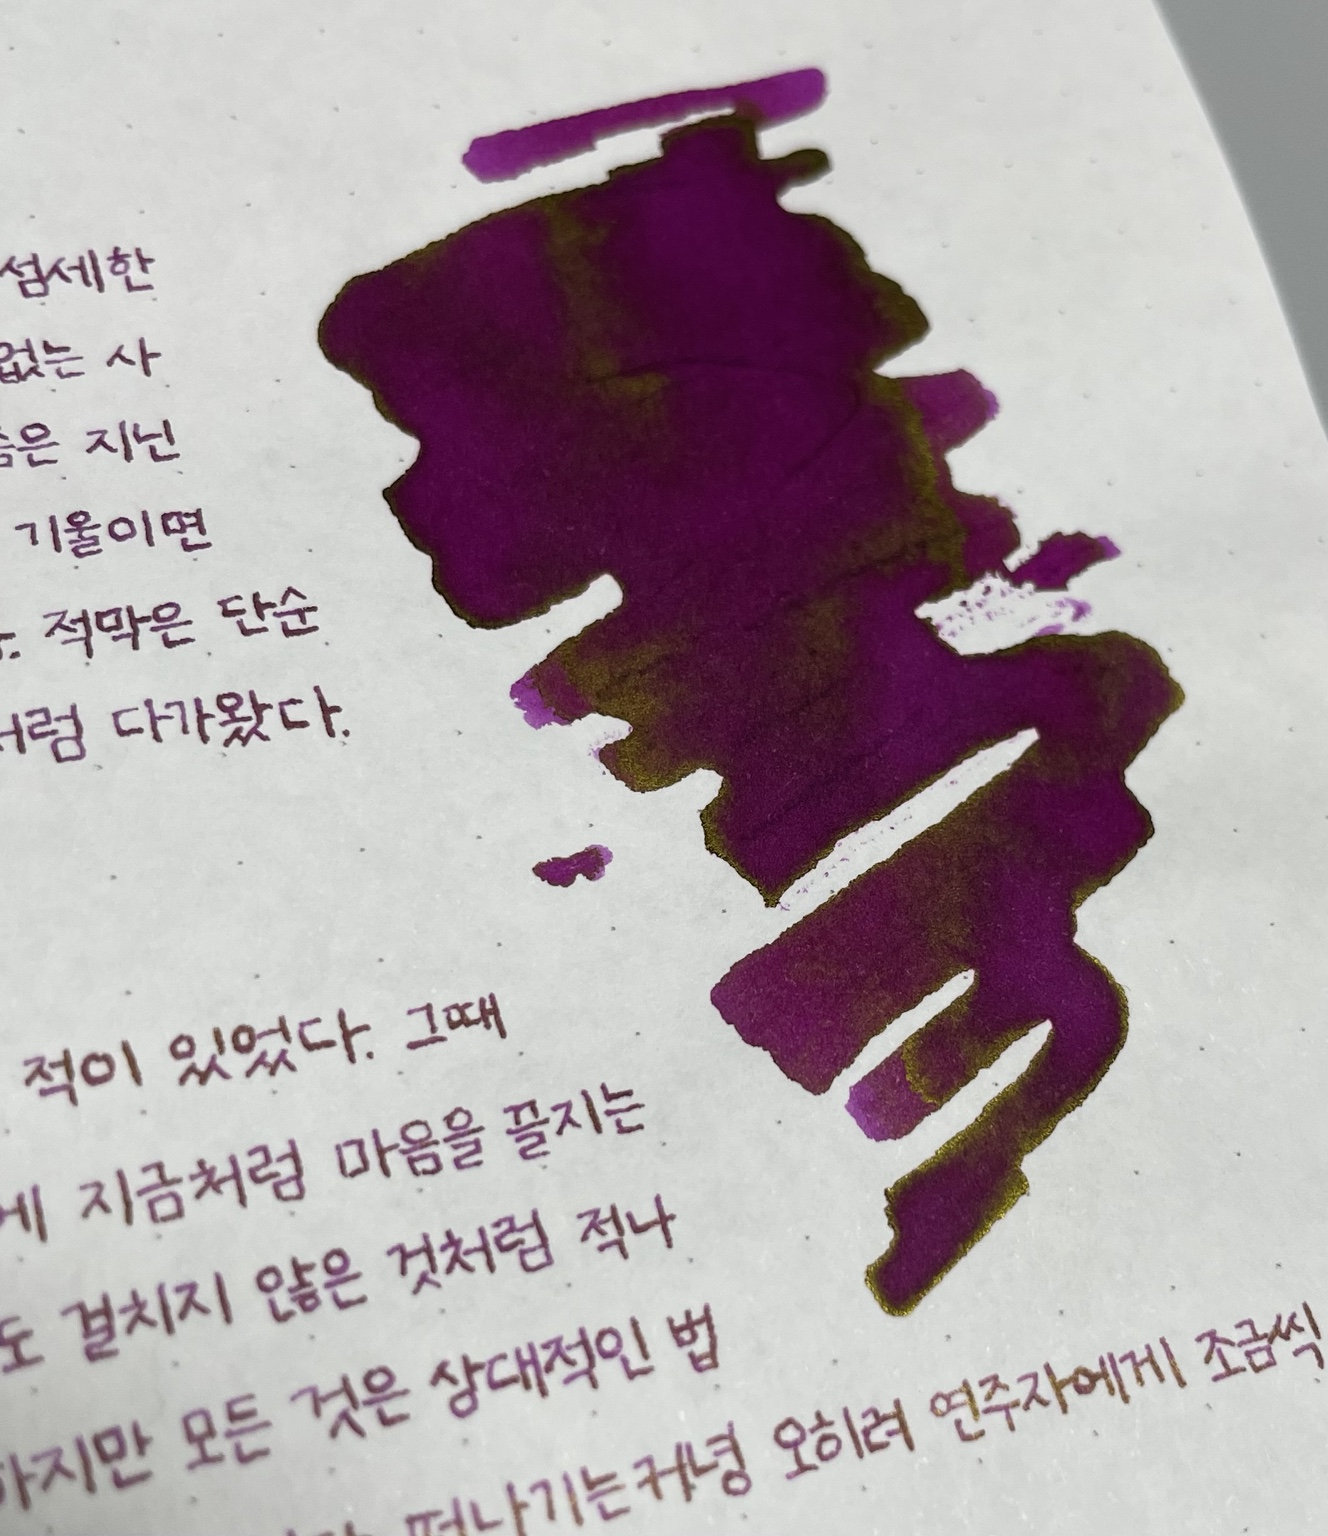 섬세한
없는 사
은 지닌
기울이면
적막은 단순
처럼 다가왔다.
적이 있었다. 그때
에 지금처럼 마음을 끌지는
도 걸치지 않은 것처럼 적나
하지만 모든 것은 상대적인 법
떠나기는커녕 오히려 연주자에게 조금씩